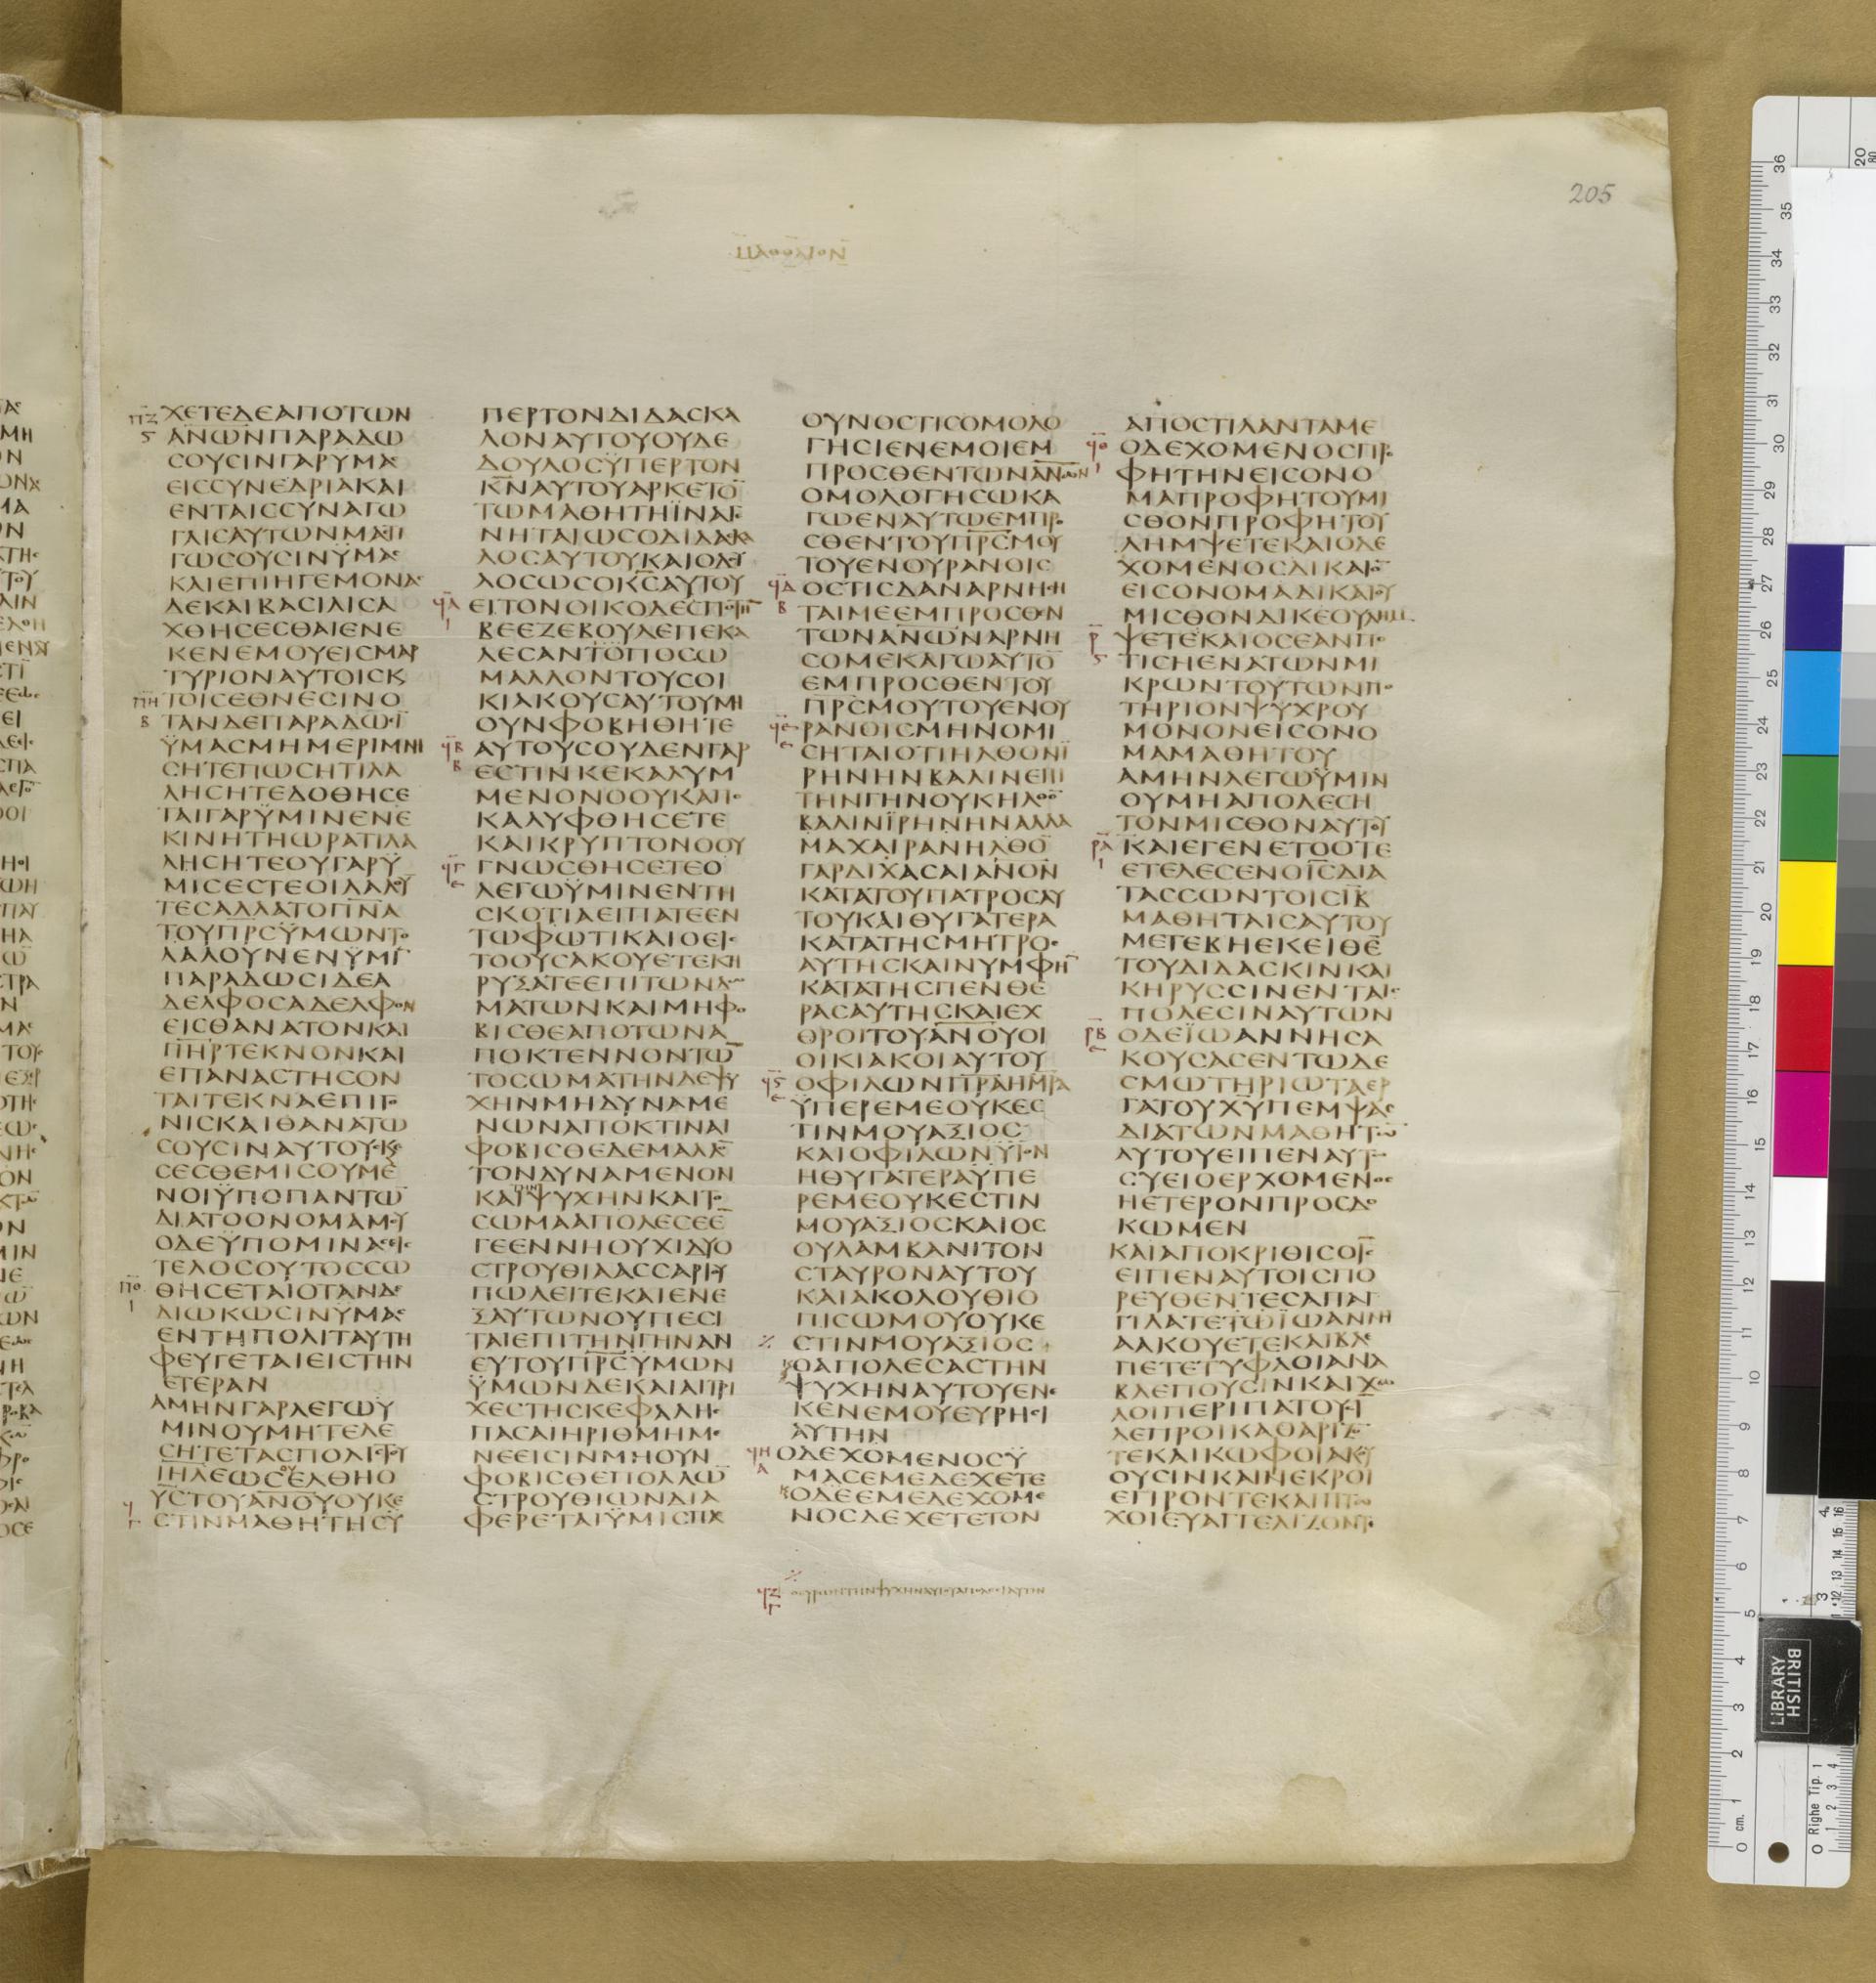 205
ΧΕΤΕΔΕΑΠΟΤΩΝ
ΑΝΩΝΠΑΡΑΔΩ
ΣΟΥΣΙΝΓΑΡΥΜΑΣ
ΕΙΣΣΥΝΕΔΡΙΑΚΑΙ
ΕΝΤΑΙΣΣΥΝΑΓΩ
ΓΑΙΣΑΥΤΩΝΜΑΣΤΙ
ΓΩΣΟΥΣΙΝΫΜΑΣ
ΚΑΙΕΠΙΗΓΕΜΟΝΑΣ
ΔΕΚΑΙΒΑΣΙΛΙΣΑ
ΧΘΗΣΕΣΘΑΙΕΝΕ
ΚΕΝΕΜΟΥΕΙΣΜΑΡ
ΤΥΡΙΟΝΑΥΤΟΙΣΚ
ΤΟΙΣΕΘΝΕΣΙΝΟ
ΤΑΝΔΕΠΑΡΑΔΩΣΙ
ΫΜΑΣΜΗΜΕΡΙΜΝΗ
ΣΗΤΕΠΩΣΗΤΙΛΑ
ΛΗΣΗΤΕΔΟΘΗΣΕ
ΤΑΙΓΑΡΫΜΙΝΕΝΕ
ΚΙΝΗΤΗΩΡΑΤΙΛΑ
ΛΗΣΗΤΕΟΥΓΑΡΫ
ΜΙΣΕΣΤΕΟΙΛΑΛΟΥ
ΤΕΣΑΛΛΑΤΟΠΝΑ
ΤΟΥΠΡΣΫΜΩΝΤΟ
ΛΑΛΟΥΝΕΝΫΜΙ
ΠΑΡΑΔΩΣΙΔΕΑ
ΔΕΛΦΟΣΑΔΕΛΦΟΝ
ΕΙΣΘΑΝΑΤΟΝΚΑΙ
ΠΗΡΤΕΚΝΟΝΚΑΙ
ΕΠΑΝΑΣΤΗΣΟΝ
ΤΑΙΤΕΚΝΑΕΠΙΓΟ
ΝΙΣΚΑΙΘΑΝΑΤΩ
ΣΟΥΣΙΝΑΥΤΟΥΣΚΕ
ΣΕΣΘΕΜΙΣΟΥΜΕ
ΝΟΙΫΠΟΠΑΝΤΩ
ΔΙΑΤΟΟΝΟΜΑΜΟΥ
ΟΔΕΫΠΟΜΙΝΑΣΕΙΣ
ΤΕΛΟΣΟΥΤΟΣΣΩ
ΘΗΣΕΤΑΙΟΤΑΝΔΕ
ΔΙΩΚΩΣΙΝΫΜΑΣ
ΕΝΤΗΠΟΛΙΤΑΥΤΗ
ΦΕΥΓΕΤΑΙΕΙΣΤΗΝ
ΕΤΕΡΑΝ
ΑΜΗΝΓΑΡΛΕΓΩΫ
ΜΙΝΟΥΜΗΤΕΛΕ
ΣΗΤΕΤΑΣΠΟΛΙΣΤΟΥ
ΙΗΛΕΩΣΟΥΕΛΘΗΟ
ΥΣΤΟΥΑΝΟΥΟΥΚΕ
ΣΤΙΝΜΑΘΗΤΗΣΫ
ΠΕΡΤΟΝΔΙΔΑΣΚΑ
ΛΟΝΑΥΤΟΥΟΥΔΕ
ΔΟΥΛΟΣΫΠΕΡΤΟΝ
ΚΝΑΥΤΟΥΑΡΚΕΤΟ
ΤΩΜΑΘΗΤΗΪΝΑΓΕ
ΝΗΤΑΙΩΣΟΔΙΔΑΣΚΑ
ΛΟΣΑΥΤΟΥΚΑΙΟΔΟΥ
ΛΟΣΩΣΟΚΣΑΥΤΟΥ
ΕΙΤΟΝΟΙΚΟΔΕΣΠΟΤΗ
ΒΕΕΖΕΒΟΥΛΕΠΕΚΑ
ΛΕΣΑΝΤΟΠΟΣΩ
ΜΑΛΛΟΝΤΟΥΣΟΙ
ΚΙΑΚΟΥΣΑΥΤΟΥΜΗ
ΟΥΝΦΟΒΗΘΗΤΕ
ΑΥΤΟΥΣΟΥΔΕΝΓΑΡ
ΕΣΤΙΝΚΕΚΑΛΥΜ
ΜΕΝΟΝΟΟΥΚΑΠΟ
ΚΑΛΥΦΘΗΣΕΤΕ
ΚΑΙΚΡΥΠΤΟΝΟΟΥ
ΓΝΩΣΘΗΣΕΤΕΟ
ΛΕΓΩΫΜΙΝΕΝΤΗ
ΣΚΟΤΙΑΕΙΠΑΤΕΕΝ
ΤΩΦΩΤΙΚΑΙΟΕΙΣ
ΤΟΟΥΣΑΚΟΥΕΤΕΚΗ
ΡΥΞΑΤΕΕΠΙΤΩΝΔΩ
ΜΑΤΩΝΚΑΙΜΗΦΟ
ΒΙΣΘΕΑΠΟΤΩΝΑ
ΠΟΚΤΕΝΝΟΝΤΩ
ΤΟΣΩΜΑΤΗΝΔΕΨΥ
ΧΗΝΜΗΔΥΝΑΜΕ
ΝΩΝΑΠΟΚΤΙΝΑΙ
ΦΟΒΙΣΘΕΔΕΜΑΛΛΟ
ΤΟΝΔΥΝΑΜΕΝΟΝ
ΚΑΙΨΥΧΗΝΚΑΙΤΟ
ΣΩΜΑΑΠΟΛΕΣΕΕ
ΓΕΕΝΝΗΟΥΧΙΔΥΟ
ΣΤΡΟΥΘΙΑΑΣΣΑΡΙΟΥ
ΠΩΛΕΙΤΕΚΑΙΕΝΕ
ΞΑΥΤΩΝΟΥΠΕΣΙ
ΤΑΙΕΠΙΤΗΝΓΗΝΑΝ
ΕΥΤΟΥΠΡΣΫΜΩΝ
ΫΜΩΝΔΕΚΑΙΑΙΤΡΙ
ΧΕΣΤΗΣΚΕΦΑΛΗΣ
ΠΑΣΑΙΗΡΙΘΜΗΜΕ
ΝΕΕΙΣΙΝΜΗΟΥΝ
ΦΟΒΙΣΘΕΠΟΛΛΩ
ΣΤΡΟΥΘΙΩΝΔΙΑ
ΦΕΡΕΤΑΙΫΜΙΣΠΑ
ΟΥΝΟΣΤΙΣΟΜΟΛΟ
ΓΗΣΙΕΝΕΜΟΙΕΜ
ΠΡΟΣΘΕΝΤΩΝΑΝΩΝ
ΟΜΟΛΟΓΗΣΩΚΑ
ΓΩΕΝΑΥΤΩΕΜΠΡΟ
ΣΘΕΝΤΟΥΠΡΣΜΟΥ
ΤΟΥΕΝΟΥΡΑΝΟΙΣ
ΟΣΤΙΣΔΑΝΑΡΝΗΣΗ
ΤΑΙΜΕΕΜΠΡΟΣΘΕΝ
ΤΩΝΑΝΩΝΑΡΝΗ
ΣΟΜΕΚΑΓΩΑΥΤΟ
ΕΜΠΡΟΣΘΕΝΤΟΥ
ΠΡΣΜΟΥΤΟΥΕΝΟΥ
ΡΑΝΟΙΣΜΗΝΟΜΙ
ΣΗΤΑΙΟΤΙΗΛΘΟΝΪ
ΡΗΝΗΝΒΑΛΙΝΕΠΙ
ΤΗΝΓΗΝΟΥΚΗΛΘΟ
ΒΑΛΙΝΪΡΗΝΗΝΑΛΛΑ
ΜΑΧΑΙΡΑΝΗΛΘΟ
ΓΑΡΔΙΧΑΣΑΙΑΝΟΝ
ΚΑΤΑΤΟΥΠΑΤΡΟΣΑΥ
ΤΟΥΚΑΙΘΥΓΑΤΕΡΑ
ΚΑΤΑΤΗΣΜΗΤΡΟΣ
ΑΥΤΗΣΚΑΙΝΥΜΦΗ
ΚΑΤΑΤΗΣΠΕΝΘΕ
ΡΑΣΑΥΤΗΣΚΑΙΕΧ
ΘΡΟΙΤΟΥΑΝΟΥΟΙ
ΟΙΚΙΑΚΟΙΑΥΤΟΥ
ΟΦΙΛΩΝΠΡΑΗΜΡΑ
ΫΠΕΡΕΜΕΟΥΚΕΣ
ΤΙΝΜΟΥΑΞΙΟΣ
ΚΑΙΟΦΙΛΩΝΫΙΟΝ
ΗΘΥΓΑΤΕΡΑΫΠΕ
ΡΕΜΕΟΥΚΕΣΤΙΝ
ΜΟΥΑΞΙΟΣΚΑΙΟΣ
ΟΥΛΑΜΒΑΝΙΤΟΝ
ΣΤΑΥΡΟΝΑΥΤΟΥ
ΚΑΙΑΚΟΛΟΥΘΙΟ
ΠΙΣΩΜΟΥΟΥΚΕ
ΣΤΙΝΜΟΥΑΞΙΟΣ
ΟΑΠΟΛΕΣΑΣΤΗΝ
ΨΥΧΗΝΑΥΤΟΥΕΝΕ
ΚΕΝΕΜΟΥΕΥΡΗΣΙ
ΑΥΤΗΝ
ΟΔΕΧΟΜΕΝΟΣΫ
ΜΑΣΕΜΕΔΕΧΕΤΕ
ΟΔΕΕΜΕΔΕΧΟΜΕ
ΝΟΣΔΕΧΕΤΕΤΟΝ
ΑΠΟΣΤΙΛΑΝΤΑΜΕ
ΟΔΕΧΟΜΕΝΟΣΠΡΟ
ΦΗΤΗΝΕΙΣΟΝΟ
ΜΑΠΡΟΦΗΤΟΥΜΙ
ΣΘΟΝΠΡΟΦΗΤΟΥ
ΛΗΜΨΕΤΕΚΑΙΟΔΕ
ΧΟΜΕΝΟΣΔΙΚΑΙΟ
ΕΙΣΟΝΟΜΑΔΙΚΑΙΟΥ
ΜΙΣΘΟΝΔΙΚΕΟΥΛΗΜ
ΨΕΤΕΚΑΙΟΣΕΑΝΠΟ
ΤΙΣΗΕΝΑΤΩΝΜΙ
ΚΡΩΝΤΟΥΤΩΝΠΟ
ΤΗΡΙΟΝΨΥΧΡΟΥ
ΜΟΝΟΝΕΙΣΟΝΟ
ΜΑΜΑΘΗΤΟΥ
ΑΜΗΝΛΕΓΩΫΜΙΝ
ΟΥΜΗΑΠΟΛΕΣΗ
ΤΟΝΜΙΣΘΟΝΑΥΤΟΥ
ΚΑΙΕΓΕΝΕΤΟΟΤΕ
ΕΤΕΛΕΣΕΝΟΙΣΔΙΑ
ΤΑΣΣΩΝΤΟΙΣΙΒ
ΜΑΘΗΤΑΙΣΑΥΤΟΥ
ΜΕΤΕΒΗΕΚΕΙΘΕ
ΤΟΥΔΙΔΑΣΚΙΝΚΑΙ
ΚΗΡΥΣΣΙΝΕΝΤΑΙΣ
ΠΟΛΕΣΙΝΑΥΤΩΝ
ΟΔΕΪΩΑΝΝΗΣΑ
ΚΟΥΣΑΣΕΝΤΩΔΕ
ΣΜΩΤΗΡΙΩΤΑΕΡ
ΓΑΤΟΥΧΥΠΕΜΨΑΣ
ΔΙΑΤΩΝΜΑΘΗΤΩ
ΑΥΤΟΥΕΙΠΕΝΑΥΤΩ
ΣΥΕΙΟΕΡΧΟΜΕΝΟΣ
ΗΕΤΕΡΟΝΠΡΟΣΔΟ
ΚΩΜΕΝ
ΚΑΙΑΠΟΚΡΙΘΙΣΟΙΣ
ΕΙΠΕΝΑΥΤΟΙΣΠΟ
ΡΕΥΘΕΝΤΕΣΑΠΑΓ
ΓΙΛΑΤΕΤΩΪΩΑΝΝΗ
ΑΑΚΟΥΕΤΕΚΑΙΒΛΕ
ΠΕΤΕΤΥΦΛΟΙΑΝΑ
ΒΛΕΠΟΥΣΙΝΚΑΙΧΩ
ΛΟΙΠΕΡΙΠΑΤΟΥΣΙ
ΛΕΠΡΟΙΚΑΘΑΡΙΖΟ
ΤΕΚΑΙΚΩΦΟΙΑΚΟΥ
ΟΥΣΙΝΚΑΙΝΕΚΡΟΙ
ΕΓΙΡΟΝΤΕΚΑΙΠΤΩ
ΧΟΙΕΥΑΓΓΕΛΙΖΟΝΤΕ
BRITISH
LIBRARY
Righe Tip.
cm.